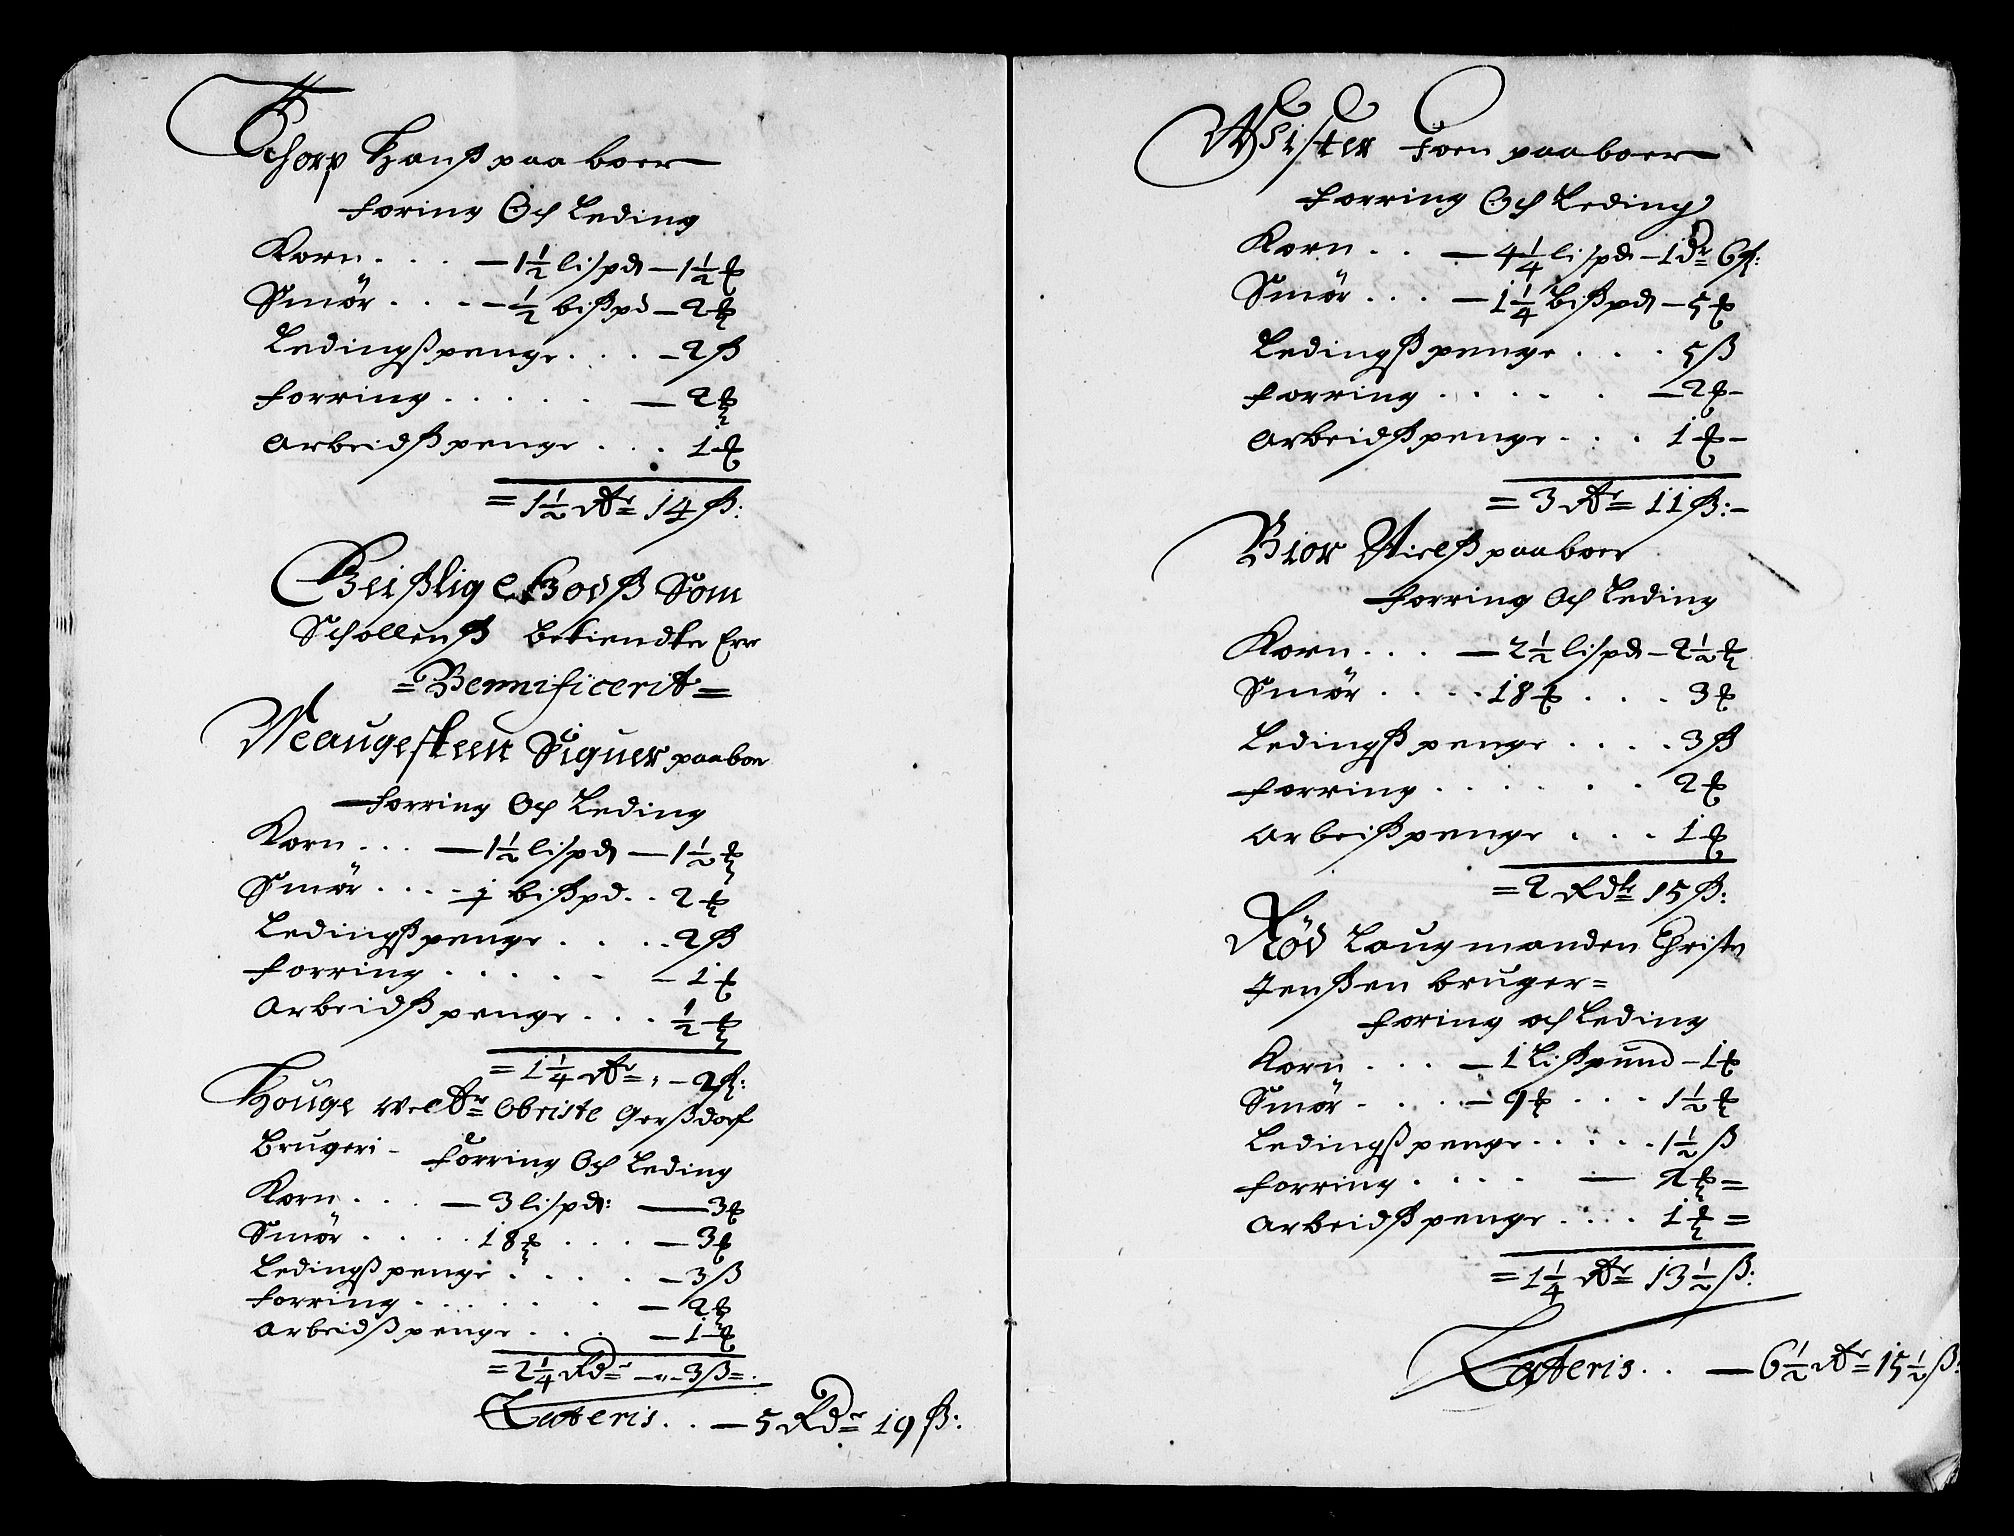 Thorp Hanß paa boer
foring Och Leding
Korn . . . — 1½ lispd — 1½ ℔
Smør . . . — ½ bißpd — 2 ℔
Ledingßpenge . . . — 2 ß
forring . . . . . — 2 ℔
Arbeidßpenge . . . 1 ℔
= 1½ Rdr 14 ß:
Geistlige Godß Som
Schollenß bekiendte Err
= Bennificerit =
Meaugesteen Siguer paaboer
forring Och Leding
Korn . . . — 1½ lispd — 1½ ℔
Smør . . . . 1 bißpd . . 2 ℔
Ledingßpenge . . . . 2 ß
forring . . . . . — 1 ℔
Arbeidßpenge . . . . ½ ℔
= 1¼ Rdr „ — 2 ß:
Houge Obriste Gerßdorf
Brugeri - forring Och Leding
Korn . . . — 3 lispd: — 3 ℔
Smør . . . . . 18 ℔ . . . — 3 ℔
Ledingßpenge . . . . — 3 ß
forring . . . . . . — 2 ℔
Arbeidßpenge . . . — 1 ℔
= 2¼ Rdr — „ — 3 ß =
Lateris . . — 5 Rdr 19 ß:
Wister foen paaboer
forring Och Leding
Korn . . — 4¼ lispd — 1 dr 6 ß:
Smør . . . — 1¼ Bißpd — 5 ℔
Ledingßpenge . . . 5 ß
forring . . . . . — 2 ℔ —
Arbeidßpenge . . . 1 ℔ —
= 3 Rdr 11 ß: —
Biør Nielß paaboer
forring Och Leding
Korn . . . — 2½ lispd — 2½ ℔
Smør . . . . 18 ℔ . . . 3 ℔
Ledingßpenge . . . . 3 ß
forring . . . . . . 2 ℔
Arbeißpenge . . . 1 ℔
= 2 Rdr 15 ß:
Rød Laugmanden Christen
Jenßen bruger =
foring och Leding
Korn . . . — 1 Lißpund — 1 ℔
Smør . . . . — 9 ℔ . . . 1½ ℔
Ledingßpenge . . . . . 1½ ß
forring . . . . — 2 ℔ =
Arbeidßpenge . . . . 1 ℔ =
= 1¼ Rdr 13½ ß:
Lateris . . — 6½ Rdr 15½ ß: